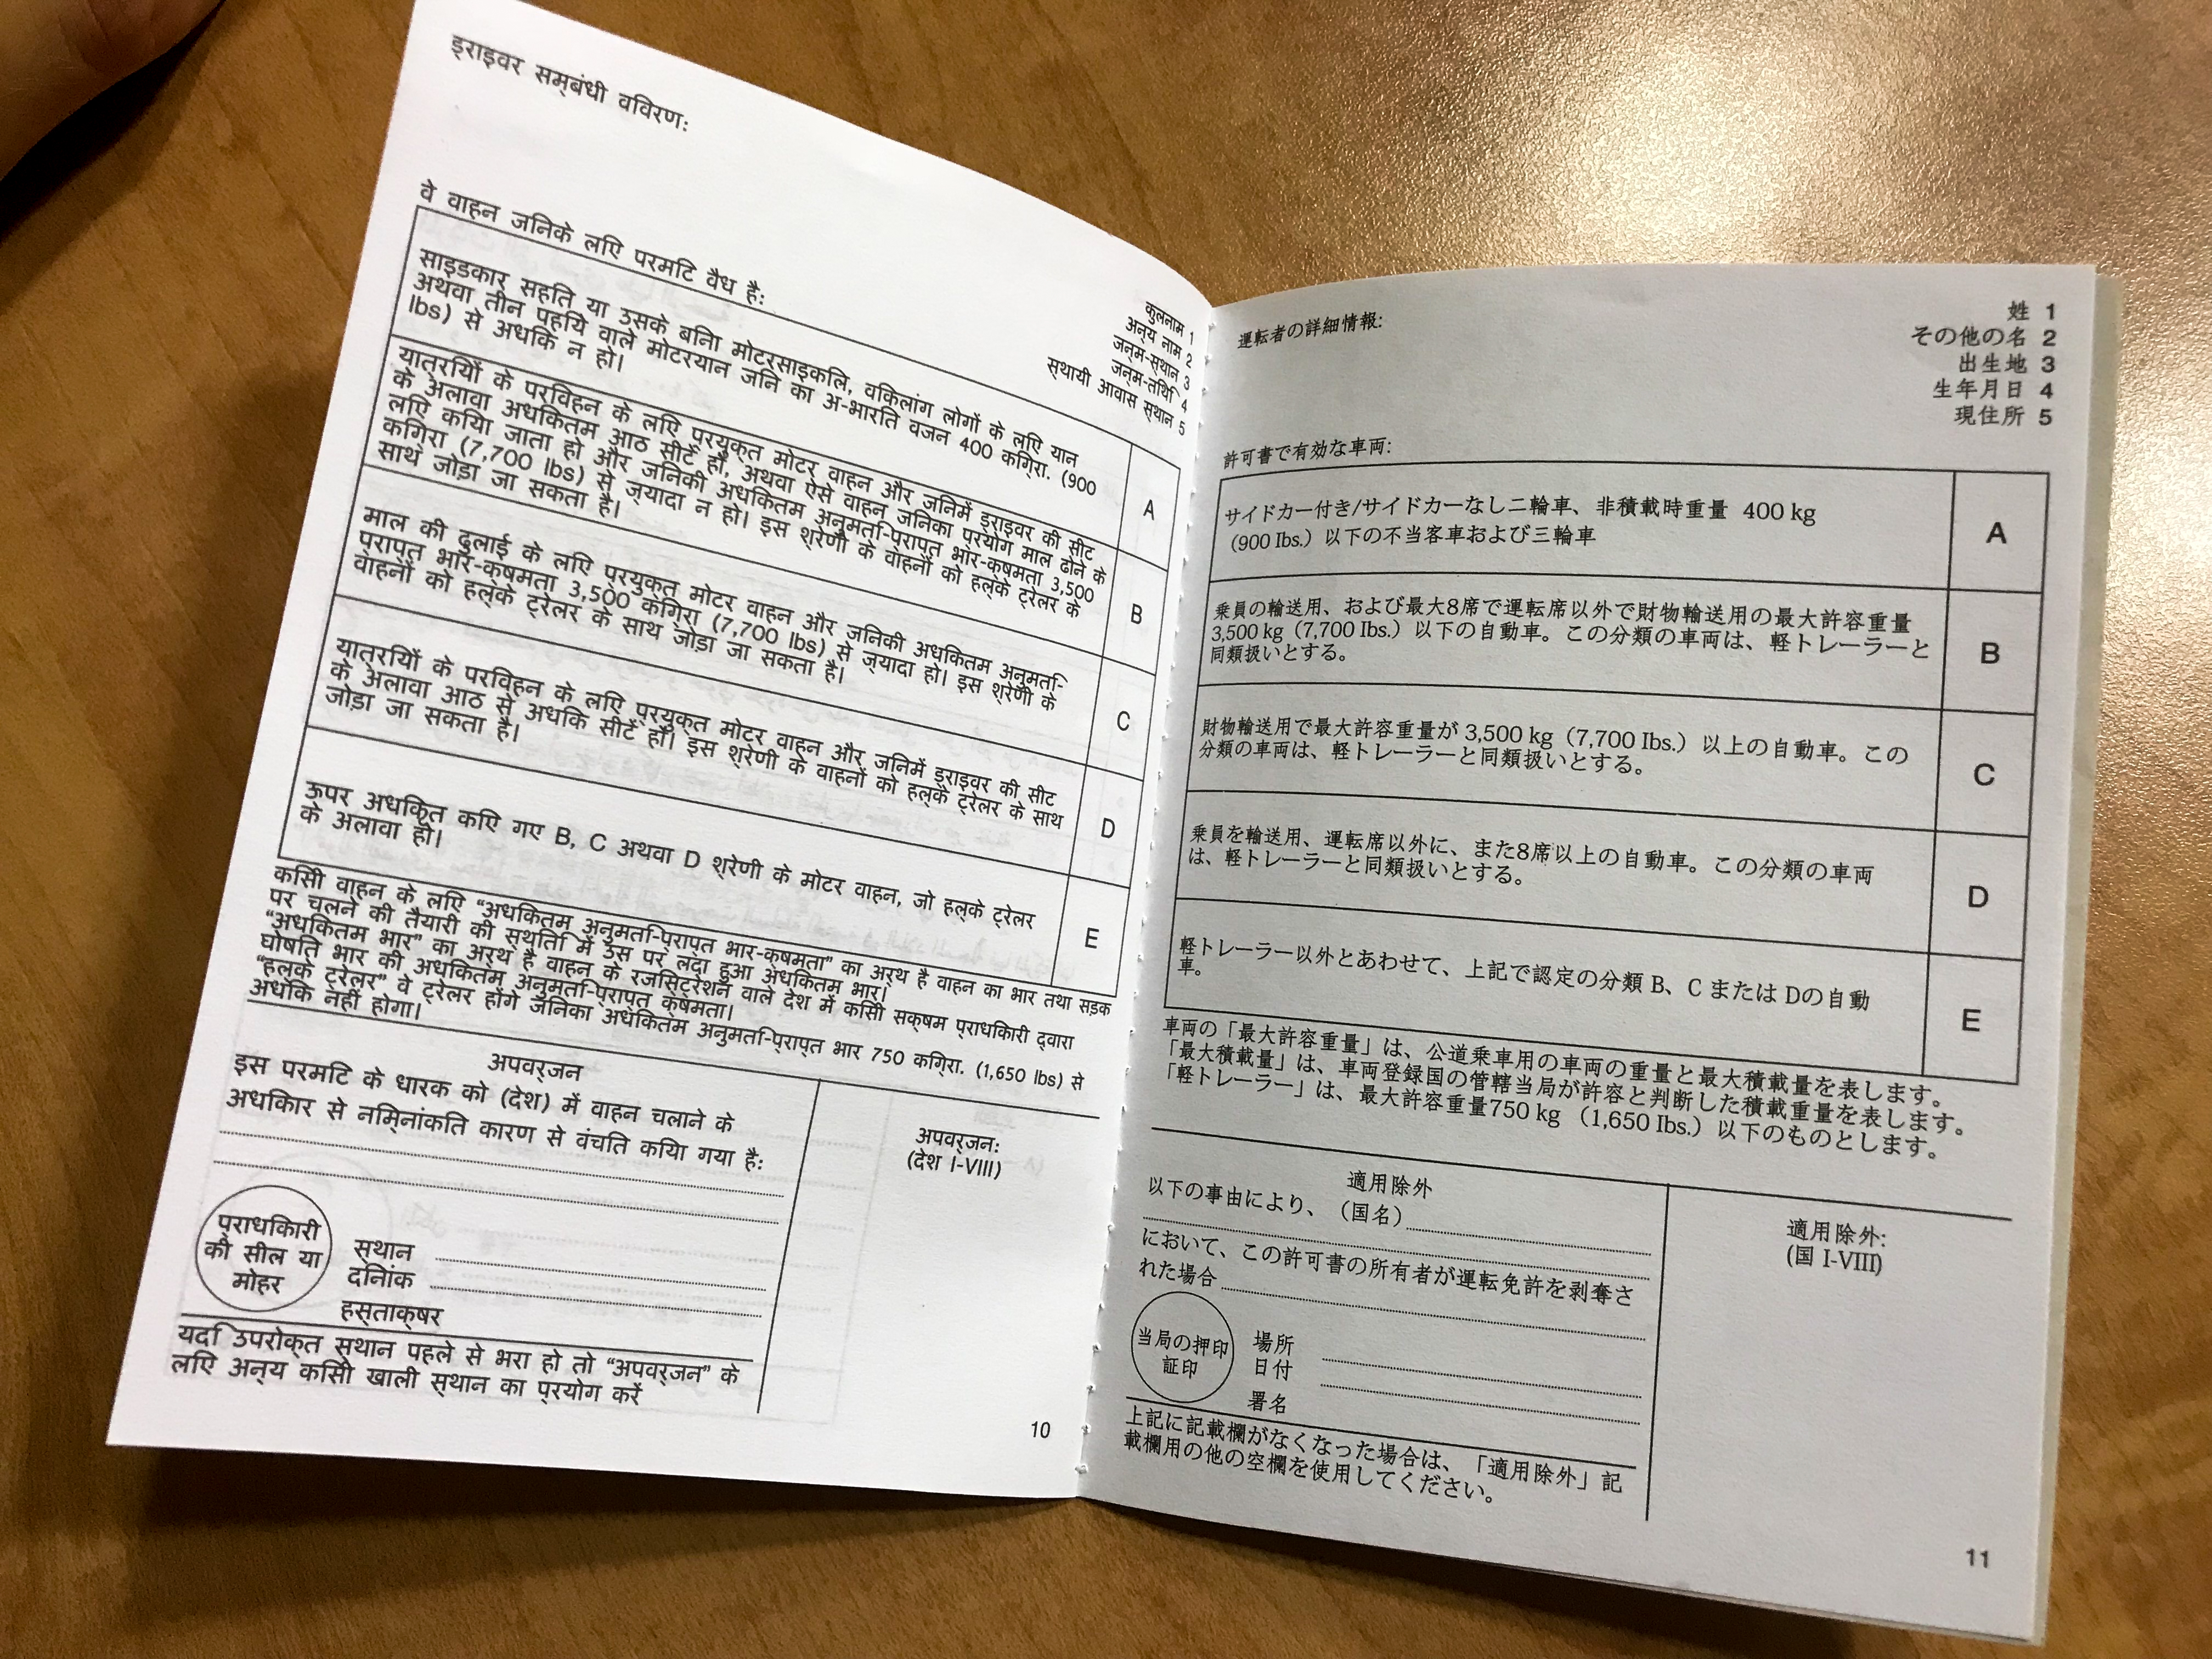 ड्राइवर सम्बंधी वविरण:
कुलनाम 1
अन्य नाम 2
जन्म-स्थान 3
जन्म-तिथि 4
स्थायी आवास स्थान 5
वे वाहन जनिके लएि परमटि वैध है:
साइडकार सहति या उसके बनिा मोटरसाइकलि, वकिलांग लोगों के लएि यान
अथवा तीन पहयिे वाले मोटरयान जनि का अ-भारति वजन 400 कगि्रा. (900
lbs) से अधकि न हो।
A
यात्रयिों के परविहन के लएि प्रयुक्त मोटर वाहन और जनिमें ड्राइवर की सीट
के अलावा अधकितम आठ सीटें हों, अथवा ऐसे वाहन जनिका प्रयोग माल ढोने के
लएि कयिा जाता हो और जनिकी अधकितम अनुमति-प्राप्त भार-क्षमता 3,500
कगि्रा (7,700 lbs) से ज्यादा न हो। इस श्रेणी के वाहनों को हल्के ट्रेलर के
साथ जोड़ा जा सकता है।
B
माल की ढुलाई के लएि प्रयुक्त मोटर वाहन और जनिकी अधकितम अनुमति-
प्राप्त भार-क्षमता 3,500 कगि्रा (7,700 lbs) से ज्यादा हो। इस श्रेणी के
वाहनों को हल्के ट्रेलर के साथ जोड़ा जा सकता है।
C
यात्रयिों के परविहन के लएि प्रयुक्त मोटर वाहन और जनिमें ड्राइवर की सीट
के अलावा आठ से अधकि सीटें हों। इस श्रेणी के वाहनों को हल्के ट्रेलर के साथ
जोड़ा जा सकता है।
D
ऊपर अधकिृत कएि गए B, C अथवा D श्रेणी के मोटर वाहन, जो हल्के ट्रेलर
के अलावा हों।
E
कसिी वाहन के लएि “अधकितम अनुमति-प्राप्त भार-क्षमता” का अर्थ है वाहन का भार तथा सड़क
पर चलने की तैयारी की स्थतिि में उस पर लदा हुआ अधकितम भार।
“अधकितम भार” का अर्थ है वाहन के रजसि्ट्रेशन वाले देश में कसिी सक्षम प्राधकिारी द्वारा
घोषति भार की अधकितम अनुमति-प्राप्त क्षमता।
“हल्के ट्रेलर” वे ट्रेलर होंगे जनिका अधकितम अनुमति-प्राप्त भार 750 कगि्रा. (1,650 lbs) से
अधकि नहीं होगा।
अपवर्जन
इस परमटि के धारक को (देश) में वाहन चलाने के
अधकिार से नमि्नांकति कारण से वंचति कयिा गया है:
अपवर्जन:
(देश I-VIII)
प्राधकिारी
की सील या
मोहर
स्थान
दनिांक
हस्ताक्षर
यदि उपरोक्त स्थान पहले से भरा हो तो “अपवर्जन” के
लएि अन्य कसिी खाली स्थान का प्रयोग करें
10
運転者の詳細情報:
姓 1
その他の名 2
出生地 3
生年月日 4
現住所 5
許可書で有効な車両:
サイドカー付き/サイドカーなし二輪車、非積載時重量 400 kg
(900 Ibs.) 以下の不当客車および三輪車
A
乗員の輸送用、および最大8席で運転席以外で財物輸送用の最大許容重量
3,500 kg (7,700 Ibs.) 以下の自動車。この分類の車両は、軽トレーラーと
同類扱いとする。
B
財物輸送用で最大許容重量が 3,500 kg (7,700 Ibs.) 以上の自動車。この
分類の車両は、軽トレーラーと同類扱いとする。
C
乗員を輸送用、運転席以外に、また8席以上の自動車。この分類の車両
は、軽トレーラーと同類扱いとする。
D
軽トレーラー以外とあわせて、上記で認定の分類 B、C または Dの自動
車。
E
車両の「最大許容重量」は、公道乗車用の車両の重量と最大積載量を表します。
「最大積載量」は、車両登録国の管轄当局が許容と判断した積載重量を表します。
「軽トレーラー」は、最大許容重量750 kg (1,650 Ibs.) 以下のものとします。
適用除外
以下の事由により、(国名)
において、この許可書の所有者が運転免許を剥奪さ
れた場合
適用除外:
(国 I-VIII)
当局の押印
証印
場所
日付
署名
上記に記載欄がなくなった場合は、「適用除外」記
載欄用の他の空欄を使用してください。
11